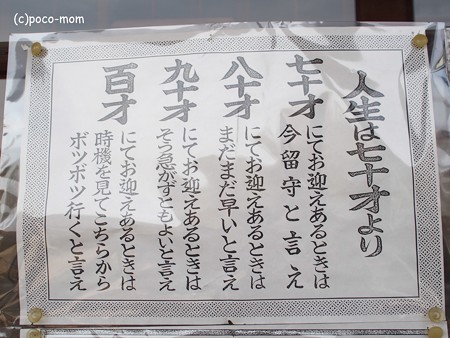 (c)poco-mom
人生は七十才より
七十才
にてお迎えあるときは
今留守と言え
八十才
にてお迎えあるときは
まだまだ早いと言え
九十才
にてお迎えあるときは
そう急がずともよいと言え
百才
にてお迎えあるときは
時機を見てこちらから
ボツボツ行くと言え